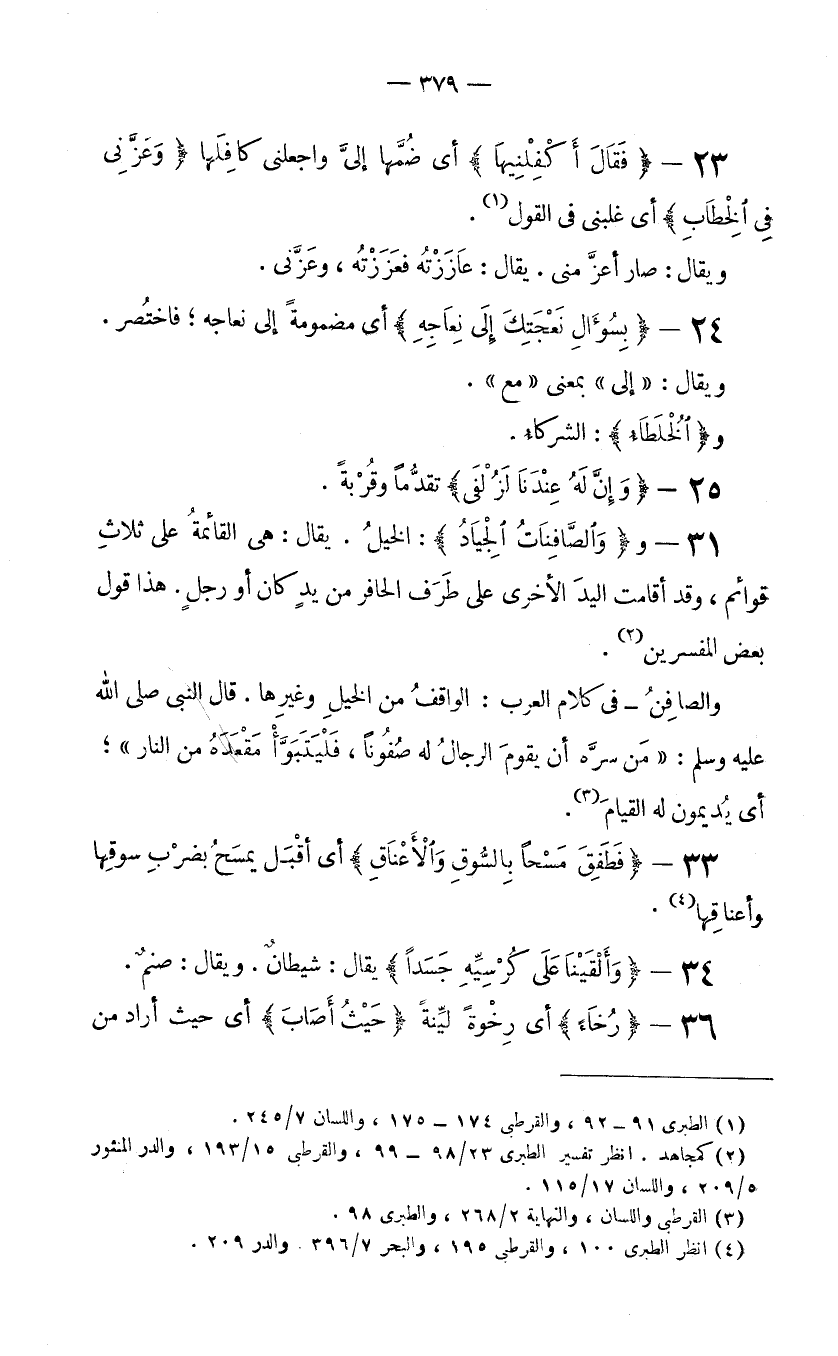 — ٣٧٩ —
٢٣ — ﴿ فَقَالَ أَكْفِلْنِيهَا ﴾ أى ضُمَّها إلىَّ واجعلنى كافِلَها ﴿ وَعَزَّنِى
فِى ٱلْخِطَابِ ﴾ أى غلبنى فى القول(١) .
ويقال : صار أعزَّ منى . يقال : عَازَزْتُه فعَزَزْتُه ، وعَزَّنى .
٢٤ — ﴿ بِسُؤَالِ نَعْجَتِكَ إِلَى نِعَاجِهِ ﴾ أى مضمومةً إلى نعاجه ؛ فاختُصر .
ويقال : « إلى » بمعنى « مع » .
و﴿ ٱلْخُلَطَاءِ ﴾ : الشركاء .
٢٥ — ﴿ وَإِنَّ لَهُ عِنْدَنَا لَزُلْفَى ﴾ تقدُّماً وقُرْبةً .
٣١ — و ﴿ وَٱلصَّافِنَاتُ ٱلْجِيَادُ ﴾ : الخيلُ . يقال : هى القائمةُ على ثلاثِ
قوائم ، وقد أقامت اليدَ الأخرى على طَرَف الحافر من يدٍ كان أو رجلٍ . هذا قول
بعض المفسرين(٢) .
والصافِنُ ــ فى كلام العرب : الواقفُ من الخيلِ وغيرِها . قال النبى صلى الله
عليه وسلم : « مَن سرَّه أن يقومَ الرجالُ له صُفُوناً ، فَلْيَتَبَوَّأْ مَقْعَدَهُ من النار » ؛
أى يُديمون له القيامَ(٣) .
٣٣ — ﴿ فَطَفِقَ مَسْحاً بِالسُّوقِ وَٱلْأَعْنَاقِ ﴾ أى أقْبَل يمسَحُ بضربِ سوقِها
وأعناقِها(٤) .
٣٤ — ﴿ وَأَلْقَيْنَا عَلَى كُرْسِيِّهِ جَسَداً ﴾ يقال : شيطانٌ . ويقال : صنمٌ .
٣٦ — ﴿ رُخَاءً ﴾ أى رِخْوةً ليِّنةً ﴿ حَيْثُ أَصَابَ ﴾ أى حيث أراد من
(١) الطبرى ٩١ ــ ٩٢ ، والقرطبى ١٧٤ ــ ١٧٥ ، واللسان ٢٤٥/٧ .
(٢) كمجاهد . انظر تفسير الطبرى ٩٨/٢٣ ــ ٩٩ ، والقرطبى ١٩٣/١٥ ، والدر المنثور
٢٠٩/٥ ، واللسان ١١٥/١٧ .
(٣) القرطبى واللسان ، والنهاية ٢٦٨/٢ ، والطبرى ٩٨ .
(٤) انظر الطبرى ١٠٠ ، والقرطبى ١٩٥ ، والبحر ٣٩٦/٧ . والدر ٢٠٩ .